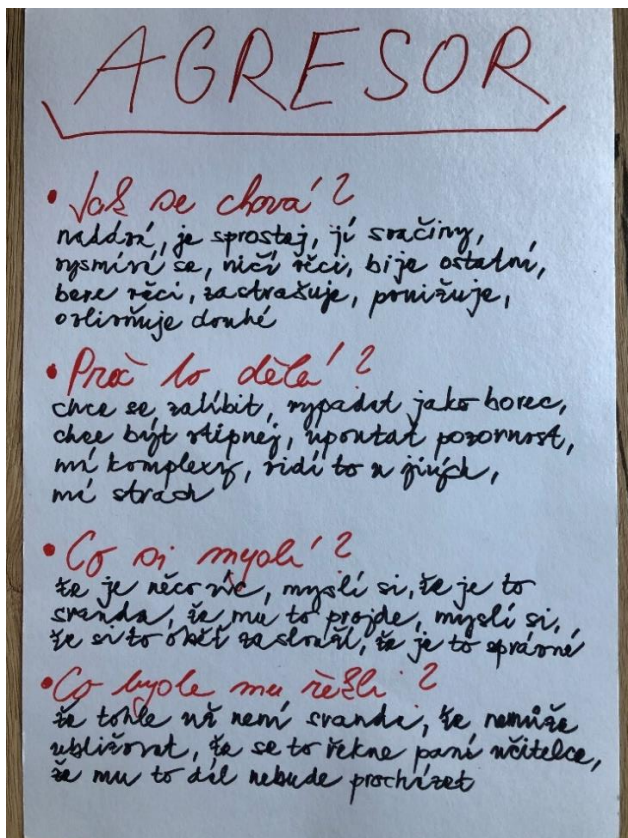 AGRESOR
• Jak se chová?
nadává, je sprostej, jí svačiny,
vysmívá se, ničí věci, bije ostatní,
bere věci, zastrašuje, ponižuje,
ovlivňuje druhé
• Proč to dělá?
chce se zalíbit, vypadat jako borec,
chce být vtipnej, upoutat pozornost,
má komplexy, vidí to u jiných,
má strach
• Co si myslí?
že je něco víc, myslí si, že je to
sranda, že mu to projde, myslí si,
že si to oběť zasloužil, že je to správné
• Co byste mu řekli?
že tohle už není sranda, že nemůže
ubližovat, že se to řekne paní učitelce,
že mu to dál nebude procházet